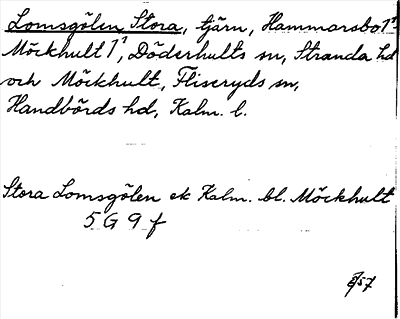 Lomsgölen Stora, tjärn, Hammarsbo 1¹
Möckhult 1¹, Döderhults sn, Stranda hd
och Möckhult, Fliseryds sn,
Handbörds hd, Kalm. l.
Stora Lomsgölen ek Kalm. bl. Möckhult
5 G 9 f